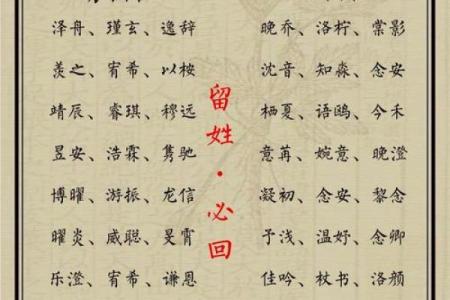 泽舟、瑾玄、逸辞
羡之、宥希、以桉
靖辰、睿琪、穆远
昱安、浩霖、隽驰
博曜、游振、龙信
曜炎、威聪、旻霄
乐澄、宥希、谦恩
留姓·必回
晚乔、洛柠、棠影
沈音、知淼、念安
栖夏、语鸥、今禾
意苒、婉意、晚澄
凝初、念安、黎念
予浅、温妤、念卿
佳吟、杖书、洛颜